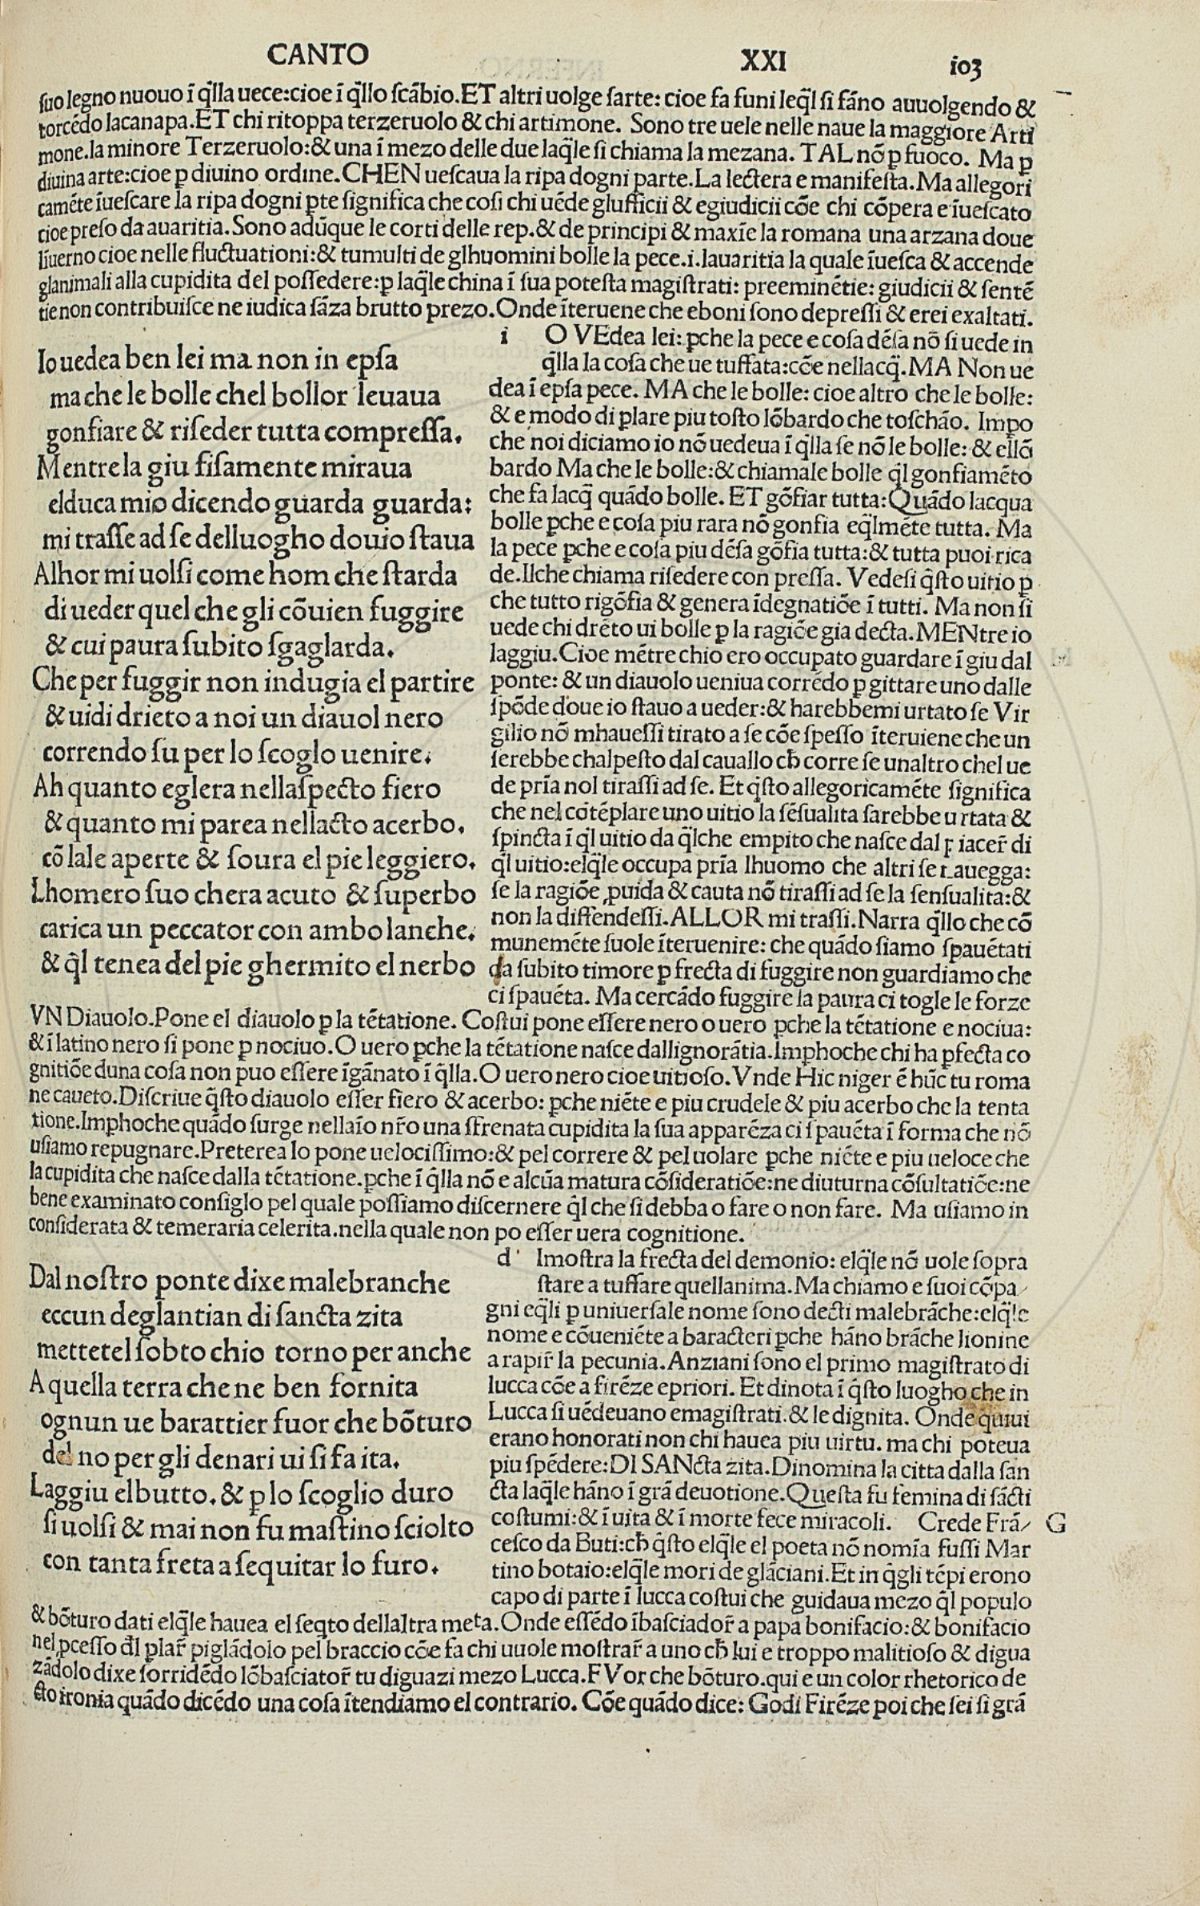 CANTO XXI i03
ſuo legno nuouo ī q̄lla uece:cioe ī q̄llo ſcābio.ET altri uolge ſarte: cioe fa funi leq̄l ſi fāno auuolgendo &
torcēdo lacanapa.ET chi ritoppa terzeruolo & chi artimone. Sono tre uele nelle naue la maggiore Arti
mone.la minore Terzeruolo:& una ī mezo delle due laq̄le ſi chiama la mezana. TAL nō ꝑ fuoco. Ma ꝑ
diuina arte:cioe ꝑ diuino ordine.CHEN ueſcaua la ripa dogni parte.La lectera e manifeſta.Ma allegori
camēte īueſcare la ripa dogni ꝑte ſignifica che coſi chi uēde glufficii & egiudicii cōe chi cōpera e īueſcato
cioe preſo da auaritia.Sono adūque le corti delle rep.& de principi & maxīe la romana una arzana doue
līuerno cioe nelle fluctuationi:& tumulti de glhuomini bolle la pece.i.lauaritia la quale īueſca & accende
glanimali alla cupidita del poſſedere:ꝑ laq̄le china ī ſua poteſta magiſtrati: preeminētie: giudicii & ſentē
tie non contribuiſce ne iudica ſāza brutto prezo.Onde īteruene che eboni ſono depreſſi & erei exaltati.
Io uedea ben lei ma non in epſa
ma che le bolle chel bollor leuaua
gonfiare & riſeder tutta compreſſa.
Mentre la giu fiſamente miraua
elduca mio dicendo guarda guarda:
mi traſſe ad ſe delluogho douio ſtaua
Alhor mi uolſi come hom che ſtarda
di ueder quel che gli cōuien fuggire
& cui paura ſubito ſgaglarda.
Che per fuggir non indugia el partire
& uidi drieto a noi un diauol nero
correndo ſu per lo ſcoglo uenire.
Ah quanto eglera nellaſpecto fiero
& quanto mi parea nellacto acerbo.
cō lale aperte & ſoura el pie leggiero.
Lhomero ſuo chera acuto & ſuperbo
carica un peccator con ambo lanche.
& q̄l tenea del pie ghermito el nerbo
i O VEdea lei:ꝑche la pece e coſa dēſa nō ſi uede in
q̄lla la coſa che ue tuffata:cōe nellacq̄.MA Non ue
dea ī epſa pece. MA che le bolle: cioe altro che le bolle:
& e modo di ꝑlare piu toſto lōbardo che toſchāo. Impo
che noi diciamo io nō uedeua ī q̄lla ſe nō le bolle: & ellō
bardo Ma che le bolle:& chiamale bolle q̄l gonfiamēto
che fa lacq̄ quādo bolle. ET gōfiar tutta:Quādo lacqua
bolle ꝑche e coſa piu rara nō gonfia eq̄lmēte tutta. Ma
la pece ꝑche e coſa piu dēſa gōfia tutta:& tutta puoi rica
de.Ilche chiama riſedere con preſſa. Vedeſi q̄ſto uitio ꝑ
che tutto rigōfia & genera īdegnatiōe ī tutti. Ma non ſi
uede chi drēto ui bolle ꝑ la ragiōe gia decta.MENtre io
laggiu.Cioe mētre chio ero occupato guardare ī giu dal
ponte: & un diauolo ueniua corrēdo ꝑ gittare uno dalle
ſpōde doue io ſtauo a ueder:& harebbemi urtato ſe Vir
gilio nō mhaueſſi tirato a ſe cōe ſpeſſo īteruiene che un
ſerebbe chalpeſto dal cauallo cħ corre ſe unaltro chel ue
de prīa nol tiraſſi ad ſe. Et q̄ſto allegoricamēte ſignifica
che nel cōtēplare uno uitio la ſēſualita ſarebbe urtata &
ſpincta ī q̄l uitio da q̄lche empito che naſce dal piacer̄ di
q̄l uitio:elq̄le occupa prīa lhuomo che altri ſe rauegga:
ſe la ragiōe guida & cauta nō tiraſſi ad ſe la ſenſualita:&
non la diffendeſſi.ALLOR mi traſſi.Narra q̄llo che cō
munemēte ſuole īteruenire: che quādo ſiamo ſpauētati
da ſubito timore ꝑ frecta di fuggire non guardiamo che
ci ſpauēta. Ma cercādo fuggire la paura ci togle le forze
VN Diauolo.Pone el diauolo ꝑ la tētatione. Coſtui pone eſſere nero o uero ꝑche la tētatione e nociua:
& ī latino nero ſi pone ꝑ nociuo.O uero ꝑche la tētatione naſce dallignorātia.Imphoche chi ha ꝑfecta co
gnitiōe duna coſa non puo eſſere īgānato ī q̄lla.O uero nero cioe uitioſo.Vnde Hic niger ē hūc tu roma
ne caueto.Diſcriue q̄ſto diauolo eſſer fiero & acerbo: ꝑche niēte e piu crudele & piu acerbo che la tenta
tione.Imphoche quādo ſurge nellaīo nr̄o una sfrenata cupidita la ſua apparēza ci ſpauēta ī forma che nō
uſiamo repugnare.Preterea lo pone uelociſſimo:& pel correre & pel uolare ꝑche niēte e piu ueloce che
la cupidita che naſce dalla tētatione.ꝑche ī q̄lla nō e alcūa matura cōſideratiōe:ne diuturna cōſultatiōe:ne
bene examinato conſiglo pel quale poſſiamo diſcernere q̄l che ſi debba o fare o non fare. Ma uſiamo in
conſiderata & temeraria celerita.nella quale non po eſſer uera cognitione.
Dal noſtro ponte dixe malebranche
eccun deglantian di ſancta zita
mettetel ſobto chio torno per anche
A quella terra che ne ben fornita
ognun ue barattier fuor che bōturo
del no per gli denari ui ſi fa ita.
Laggiu elbutto.& ꝑ lo ſcoglio duro
ſi uolſi & mai non fu maſtino ſciolto
con tanta freta a ſequitar lo furo.
d Imoſtra la frecta del demonio: elq̄le nō uole ſopra
ſtare a tuffare quellanima. Ma chiamo e ſuoi cōpa
gni eq̄li ꝑ uniuerſale nome ſono decti malebrāche:elq̄le
nome e cōueniēte a baracteri ꝑche hāno brāche lionine
a rapir̄ la pecunia.Anziani ſono el primo magiſtrato di
lucca cōe a firēze epriori. Et dinota ī q̄ſto luogho che in
Lucca ſi uēdeuano emagiſtrati.& le dignita. Onde quiui
erano honorati non chi hauea piu uirtu. ma chi poteua
piu ſpēdere:DI SANcta zita.Dinomina la citta dalla ſan
cta laq̄le hāno ī grā deuotione.Queſta fu femina di ſācti
coſtumi:& ī uita & ī morte fece miracoli. Crede Frā G
ceſco da Buti:cħ q̄ſto elq̄le el poeta nō nomīa fuſſi Mar
tino botaio:elq̄le mori de glāciani.Et in q̄gli tēpi erono
capo di parte ī lucca coſtui che guidaua mezo q̄l populo
& bōturo dati elq̄le hauea el ſeq̄to dellaltra meta.Onde eſſēdo ībaſciador̄ a papa bonifacio:& bonifacio
nel ꝑceſſo dl̄ ꝑlar̄ piglādolo pel braccio cōe fa chi uuole moſtrar̄ a uno cħ lui e troppo malitioſo & digua
zādolo dixe ſorridēdo lōbaſciator̄ tu diguazi mezo Lucca.FVor che bōturo.qui e un color rhetorico de
cto ironia quādo dicēdo una coſa ītendiamo el contrario. Cōe quādo dice: Godi Firēze poi che ſei ſi grā